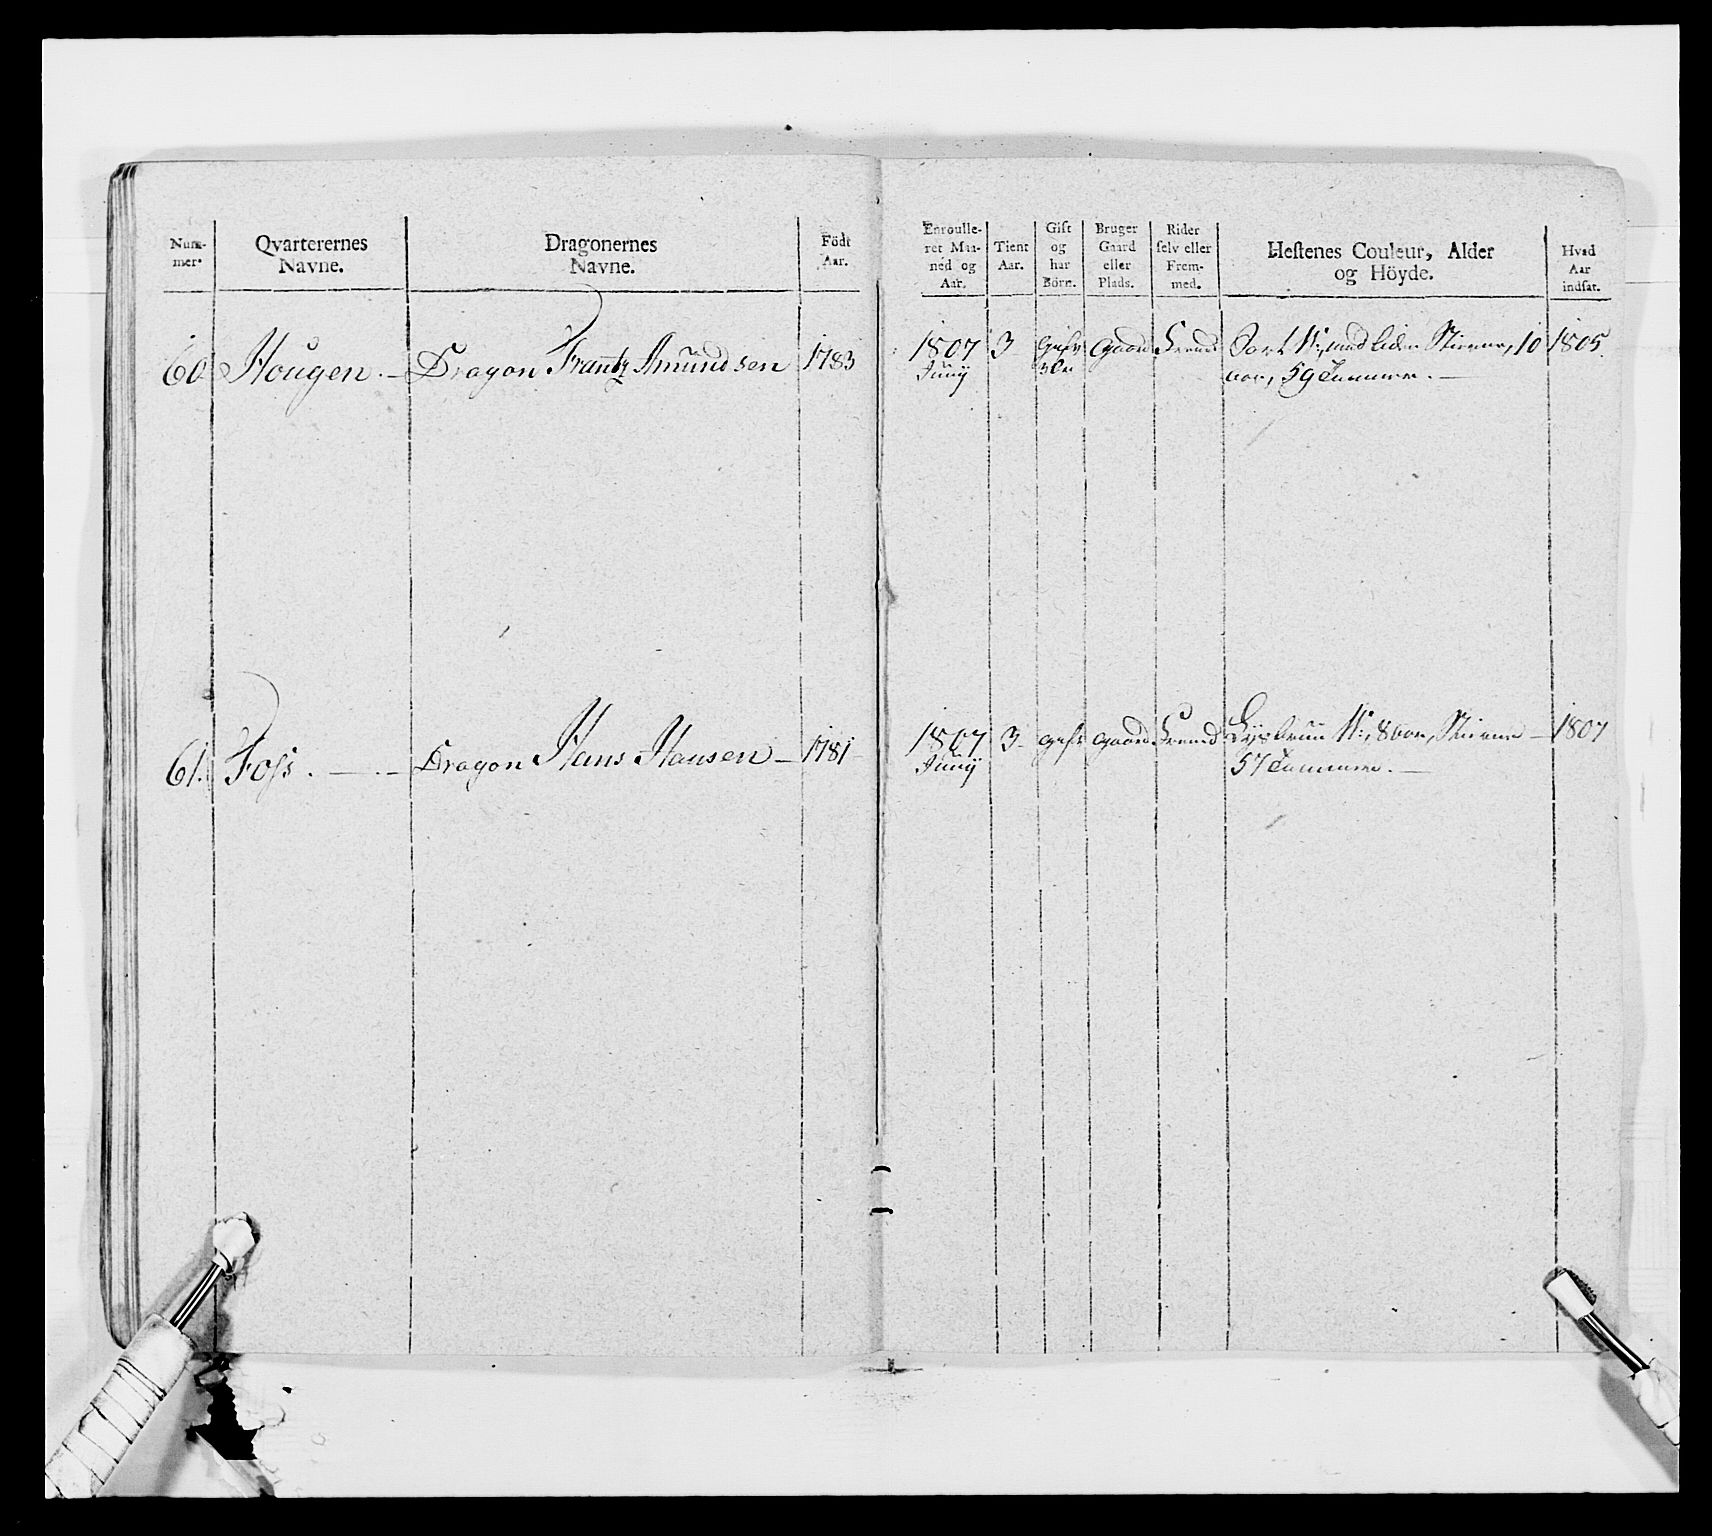 Num-
mer.
Qvarterernes
Navne.
Dragonernes
Navne.
Födt
Aar.
Enroulle-
ret Maa-
ned og
Aar.
Tient
Aar.
Gift
og
har
Börn.
Bruger
Gaard
eller
Plads.
Rider
selv eller
Frem-
med.
Hestenes Couleur, Alder
og Höyde.
Hvad
Aar
indsat.
60 Hougen. Dragon Frantz Amundsen 1783 1807 3 gift gaard Fremd Sort H: med liden Stierne, 10 1805.
Juny aar, 59 Tommer.
61. Foss. Dragon Hans Hansen 1781 1807 3 gift gaard Fremd Lysbruun H:, 8 aar, Stierne 1807
Juny 57 Tommer.